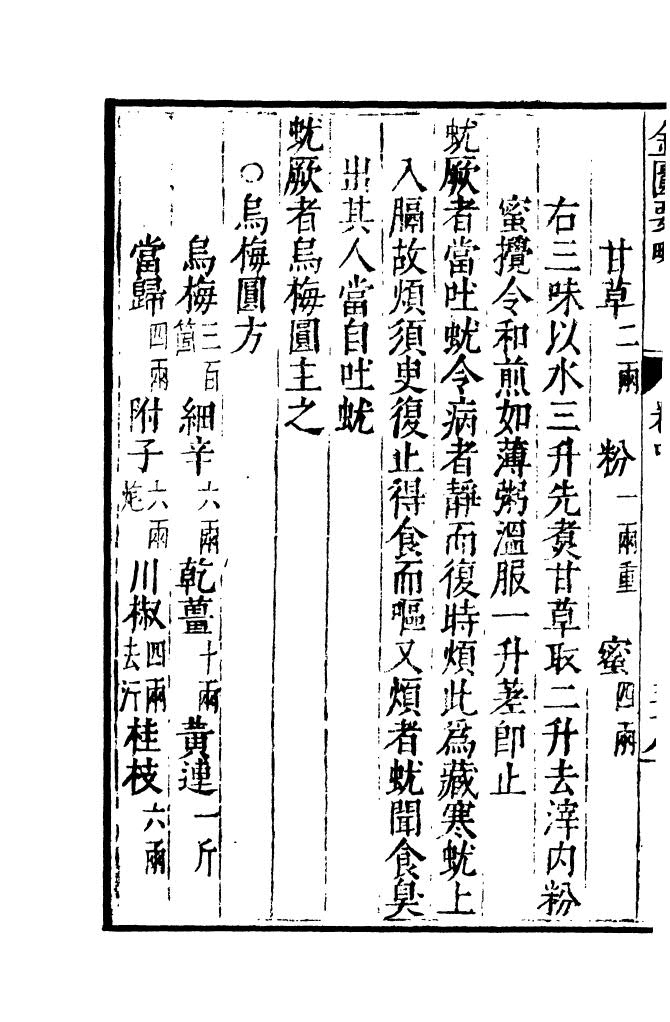 金匱要略
甘草二兩　粉一兩重　蜜四兩
右三味以水三升先煑甘草取二升去滓內粉
蜜攪令和煎如薄粥溫服一升差卽止
蚘厥者當吐蚘令病者靜而復時煩此爲藏寒蚘上
入膈故煩須臾復止得食而嘔又煩者蚘聞食臭
出其人當自吐蚘
蚘厥者烏梅圓主之
○烏梅圓方
烏梅三百箇　細辛六兩　乾薑十兩　黃連一斤
當歸四兩　附子六兩炮　川椒四兩去汗　桂枝六兩